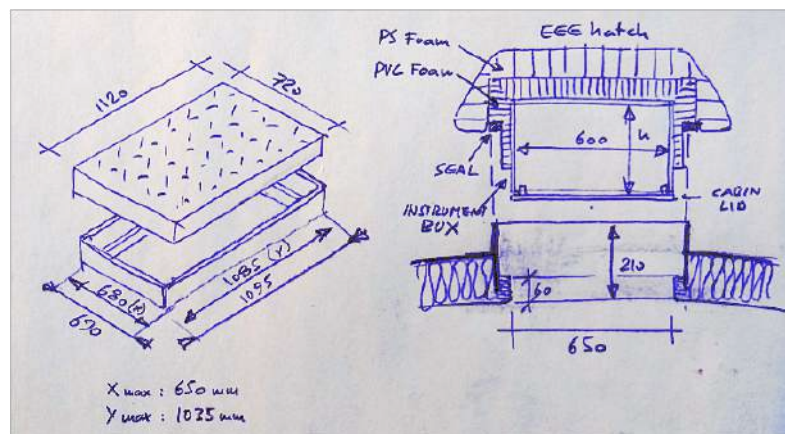 1120
720
680 (x)
690
1085 (Y)
1095
X max : 650 mm
Y max : 1035 mm
EEE hatch
PS Foam
PVC Foam
600
h
SEAL
INSTRUMENT
BOX
CABIN
LID
210
60
650